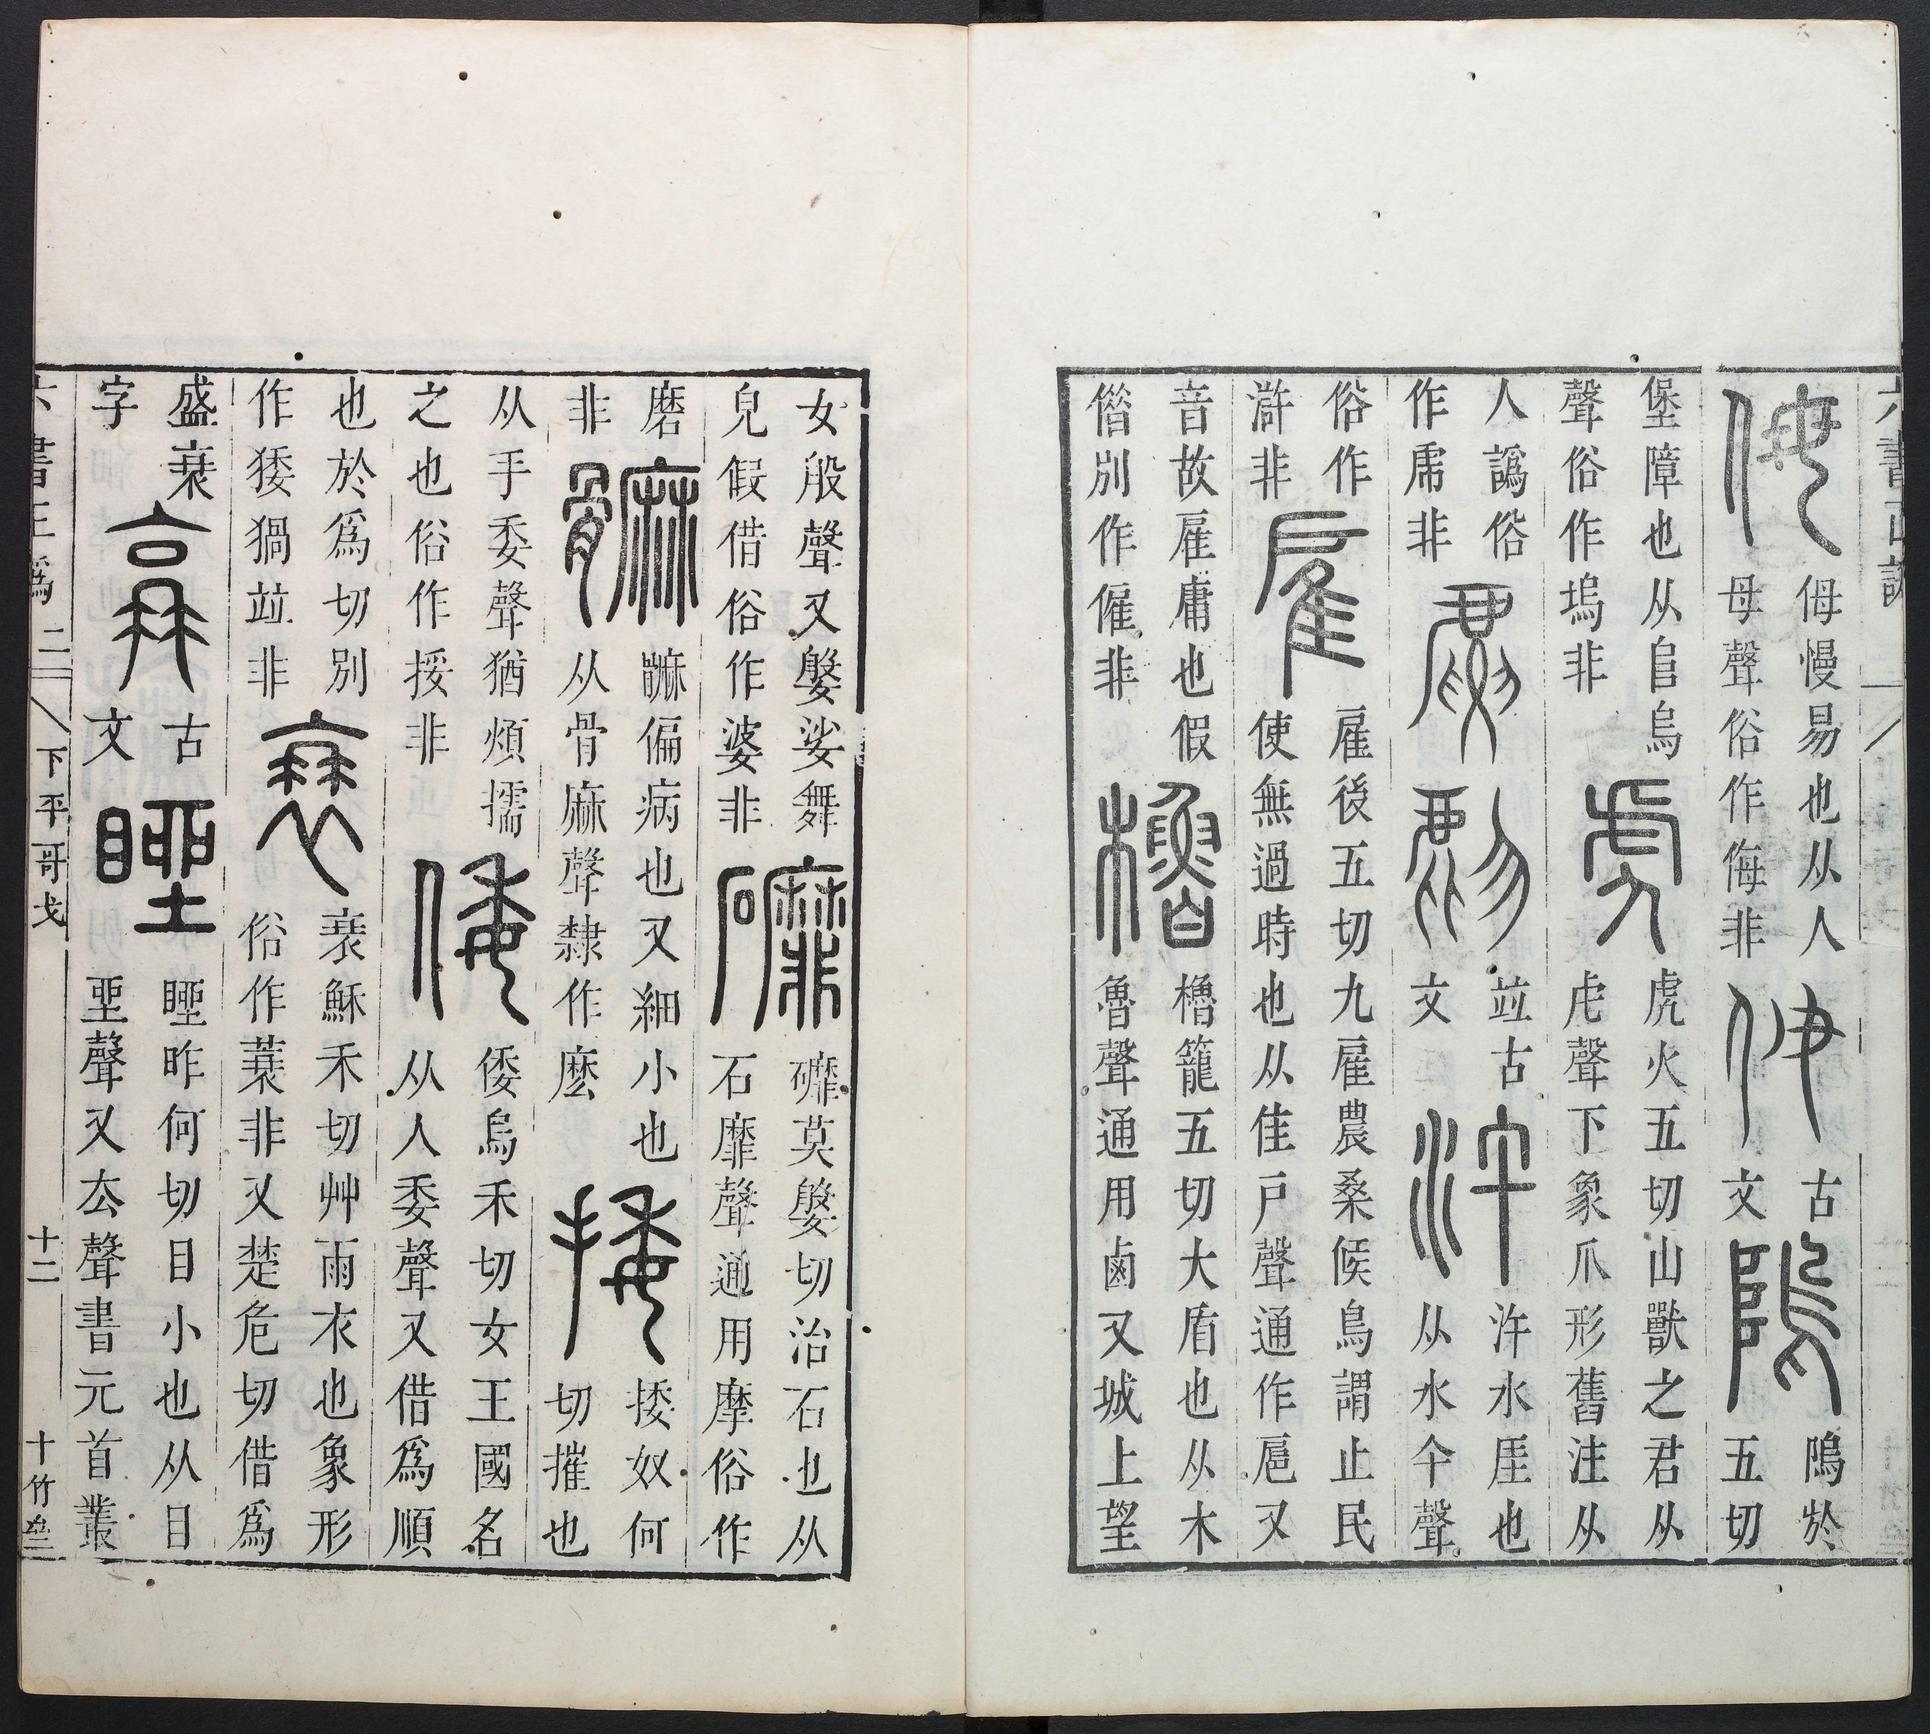 六書正譌
侮
侮慢易也从人
母聲俗作侮非
㑄
古
文
隖
隖於
五切
堡障也从𨸏烏
聲俗作塢非
虎
虎火五切山獸之君从
虍聲下象爪形舊注从
人譌俗
作乕非
並古
文
汻
汻水厓也
从水午聲
俗作
滸非
雇
雇後五切九雇農桑候鳥謂止民
使無過時也从隹戶聲通作扈又
音故雇庸也假
借別作僱非
櫓
櫓籠五切大盾也从木
魯聲通用鹵又城上望
女般聲又媻娑舞
皃假借俗作婆非
䃺
䃺莫媻切治石也从
石靡聲通用摩俗作
磨
非
䯢
䯢偏病也又細小也
从骨麻聲隸作麽
捼
捼奴何
切摧也
从手委聲猶煩擩
之也俗作挼非
倭
倭烏禾切女王國名
从人委聲又借爲順
也於爲切別
作㹻猧並非
衰
衰穌禾切艸雨衣也象形
俗作蓑非又楚危切借爲
盛衰
字
古
文
睉
睉昨何切目小也从目
坐聲又厺聲書元首叢
六書正譌 二 下平哥戈 十二 十竹齋